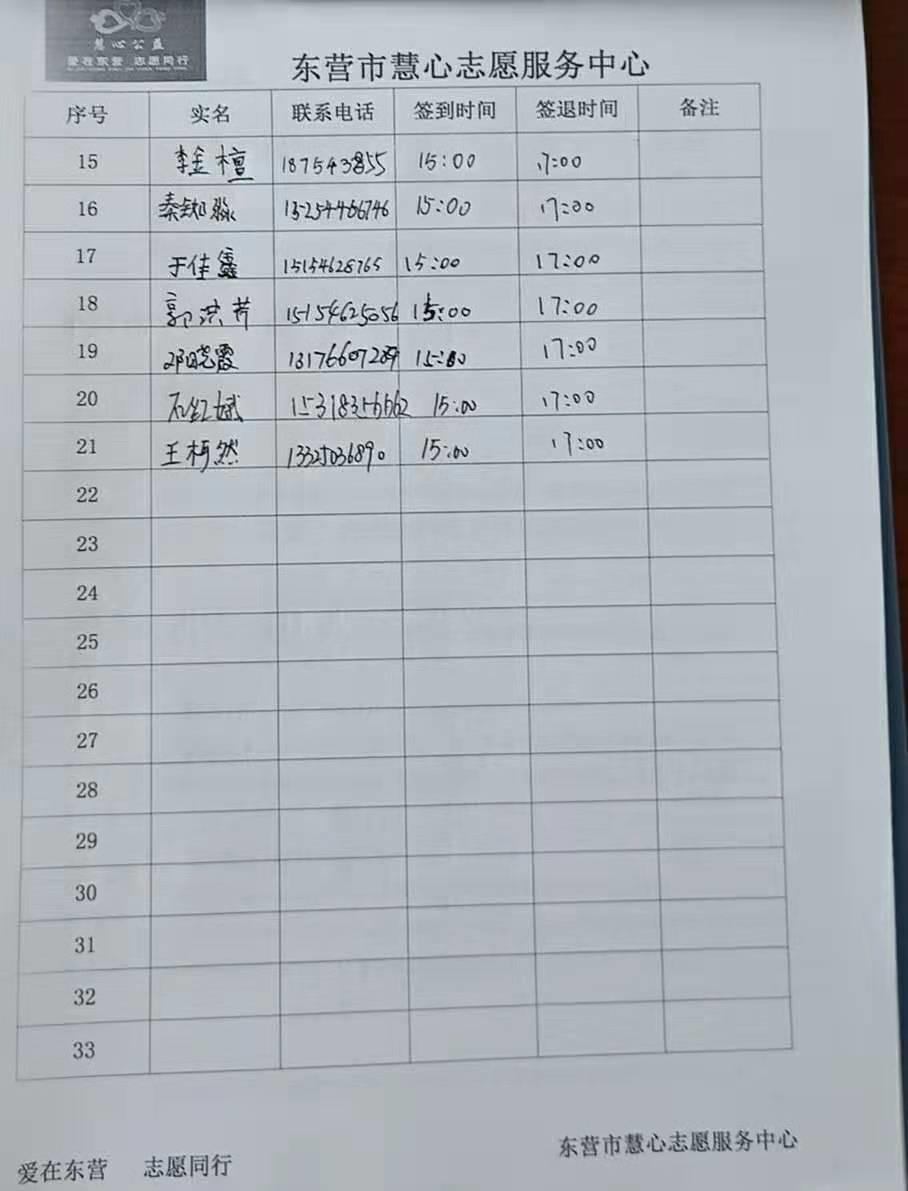 慧心公益
爱在东营 志愿同行
东营市慧心志愿服务中心
序号 实名 联系电话 签到时间 签退时间 备注
15 李金檀 187543855 15:00 17:00
16 秦知淼 15254466746 15:00 17:00
17 于佳鑫 15154628765 15:00 17:00
18 郭洪芳 15154625056 15:00 17:00
19 邓晓霞 13176607289 15:00 17:00
20 石红斌 15318356662 15:00 17:00
21 王柯然 13325036890 15:00 17:00
22
23
24
25
26
27
28
29
30
31
32
33
爱在东营 志愿同行
东营市慧心志愿服务中心